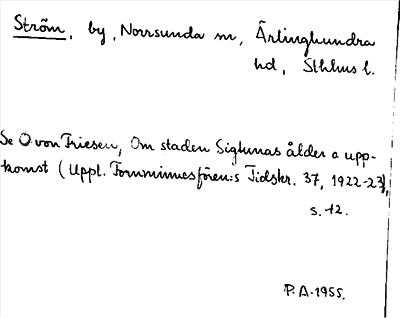 Ström, by, Norrsunda sn, Ärlinghundra
hd, Sthlms l.
Se O. von Friesen, Om staden Sigtunas ålder o upp-
komst (Uppl. Fornminnesfören:s Tidskr. 37, 1922-23),
s. 12.
P.A. 1955.